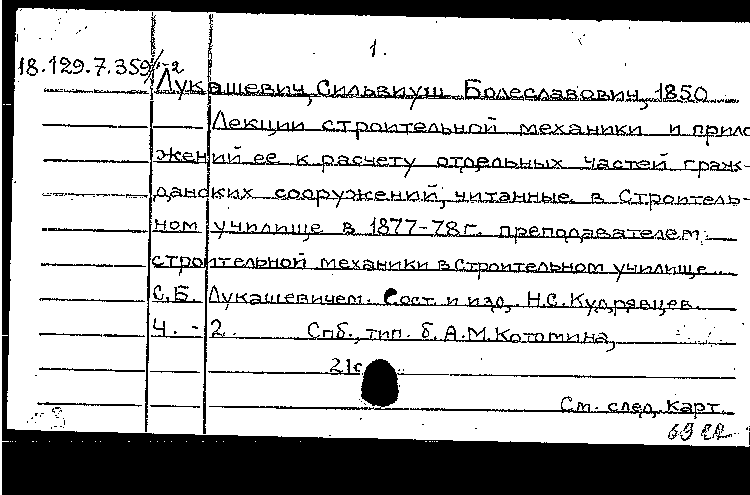 1.
18.129.7.359/1-2
Лукашевич, Сильвиуш Болеславович, 1850
Лекции строительной механики и прило
жений ее к расчету отдельных частей граж-
данских сооружений, читанные в Строитель-
ном училище в 1877-78 г. преподавателем
строительной механики в Строительном училище
С.Б. Лукашевичем. Сост. и изд. Н.С. Кудрявцев.
Ч. - 2. Спб., тип. б. А.М. Котомина,
21с
См. след. карт.